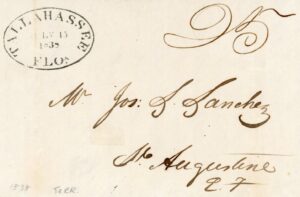 TALLAHASSEE
LY 15
1838
FLOR
25
Mr Jos. S. Sanchez
St. Augustine
E. F
1838 TERR.